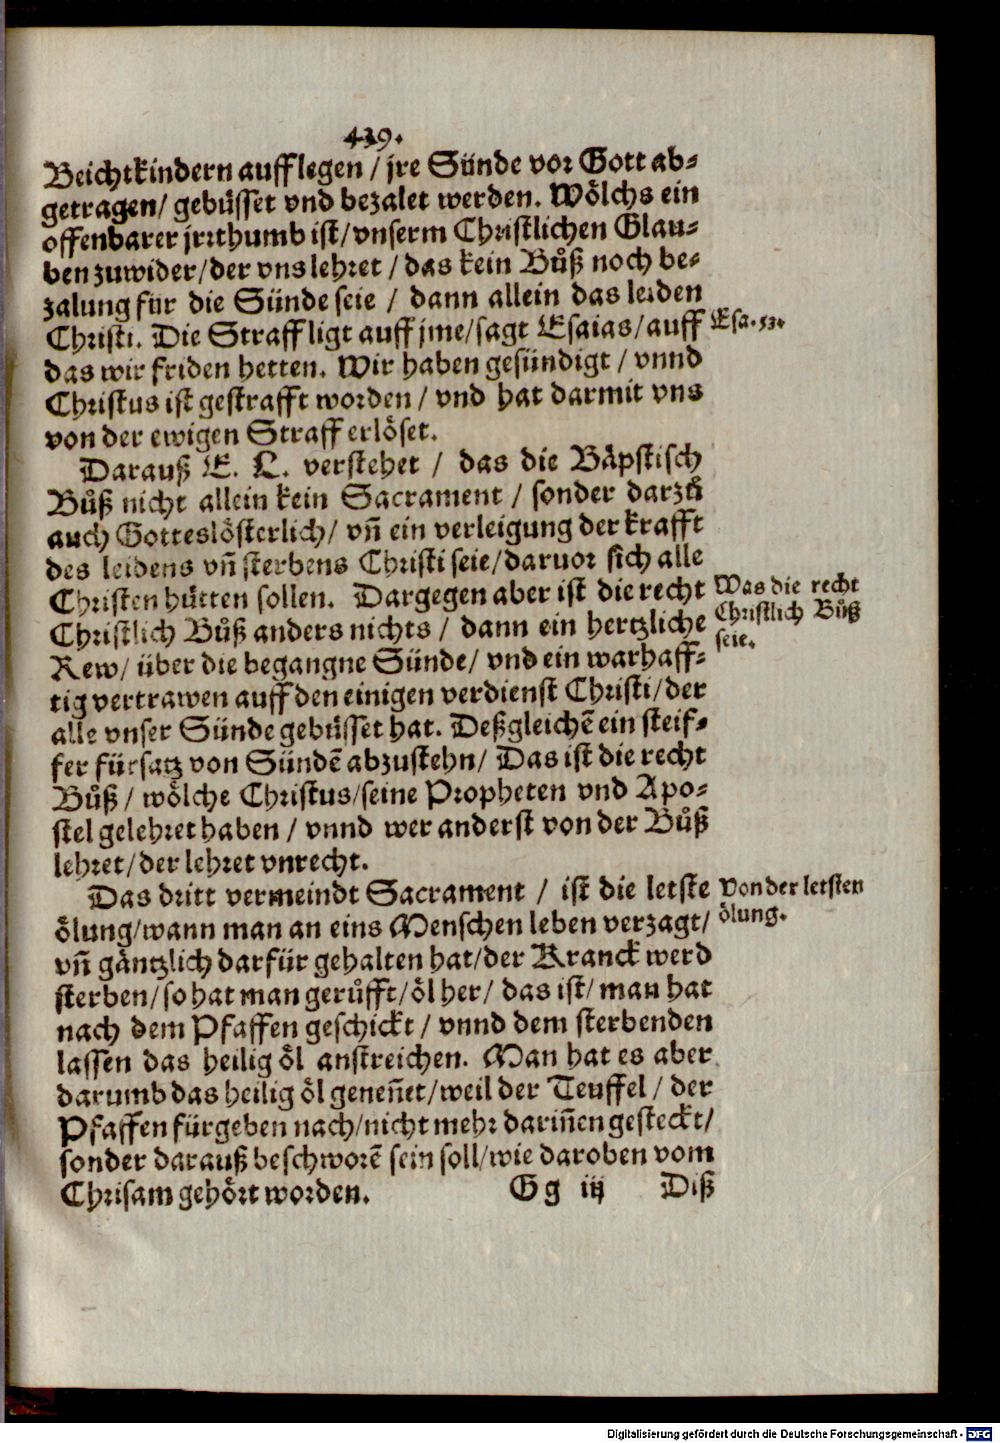 439.
Beichtkindern aufflegen / jre Sünde vor Gott ab-
getragen / gebüsset vnd bezalet werden. Wölchs ein
offenbarer jrrthumb ist / vnserm Christlichen Glau-
ben zuwider / der vns lehret / das kein Bůß noch be-
zalung für die Sünde seie / dann allein das leiden
Christi. Die Straff ligt auff jme / sagt Esaias / auff
Esa. 53.
das wir friden hetten. Wir haben gesündigt / vnnd
Christus ist gestrafft worden / vnd hat darmit vns
von der ewigen Straff erlöset.
Darauß E. L. verstehet / das die Bäpstisch
Bůß nicht allein kein Sacrament / sonder darzů
auch Gotteslösterlich / vn̄ ein verleigung der krafft
des leidens vn̄ sterbens Christi seie / daruor sich alle
Christen hütten sollen. Dargegen aber ist die recht
Christlich Bůß anders nichts / dann ein hertzliche
Was die recht
Christlich Bůß
seie.
Rew / über die begangne Sünde / vnd ein warhaff-
tig vertrawen auff den einigen verdienst Christi / der
alle vnser Sünde gebüsset hat. Deßgleichē ein steif-
fer fürsatz von Sündē abzustehn / Das ist die recht
Bůß / wölche Christus / seine Propheten vnd Apo-
stel gelehret haben / vnnd wer anderst von der Bůß
lehret / der lehret vnrecht.
Das dritt vermeindt Sacrament / ist die letste
Von der letsten
ölung.
ölung / wann man an eins Menschen leben verzagt /
vn̄ gäntzlich darfür gehalten hat / der Kranck werd
sterben / so hat man gerůfft / öl her / das ist / man hat
nach dem Pfaffen geschickt / vnnd dem sterbenden
lassen das heilig öl anstreichen. Man hat es aber
darumb das heilig öl genen̄et / weil der Teuffel / der
Pfaffen fürgeben nach / nicht mehr darin̄en gesteckt /
sonder darauß beschworē sein soll / wie daroben vom
Chrisam gehört worden.
Gg iij
Diß
Digitalisierung gefördert durch die Deutsche Forschungsgemeinschaft - DFG